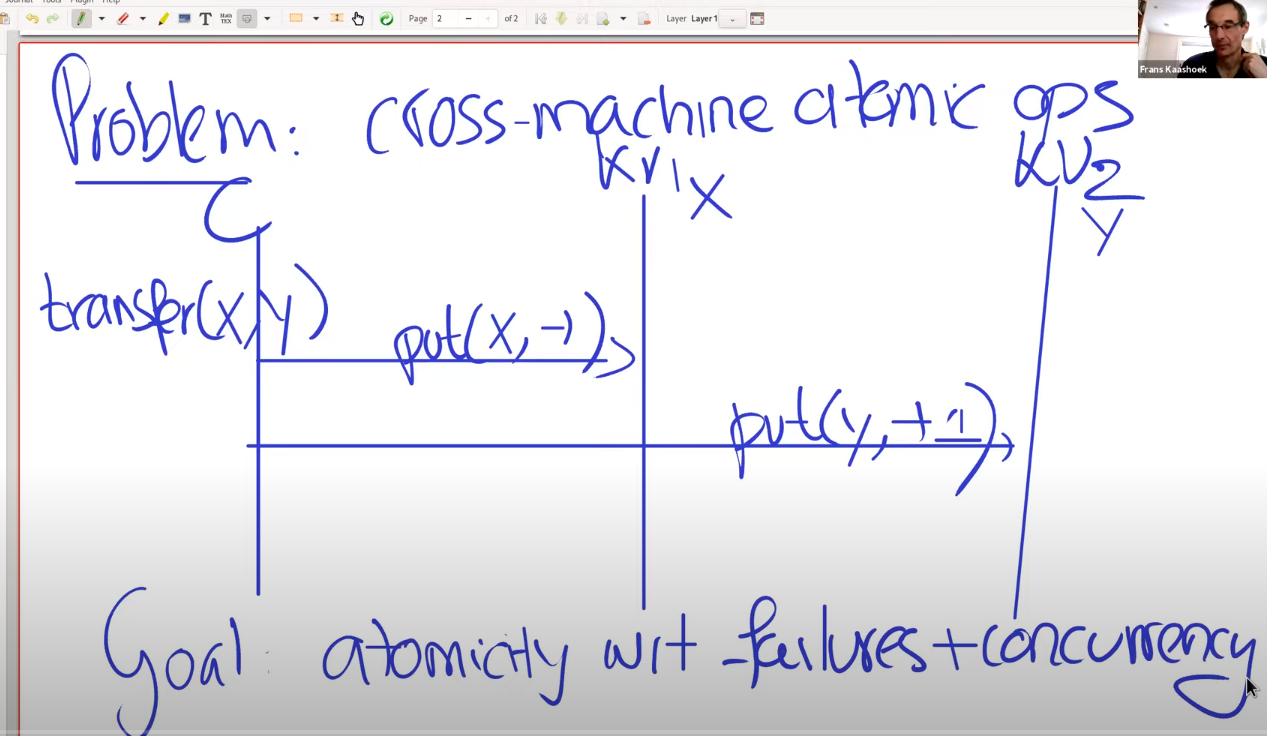 Journal Tools Plugin Help
T Math TEX Page 2 of 2 Layer Layer 1
Frans Kaashoek
Problem: cross-machine atomic ops
C KV1 X KV2 Y
transfer(X,Y)
put(X, -1)
put(Y, +1)
Goal: atomicity wrt failures + concurrency